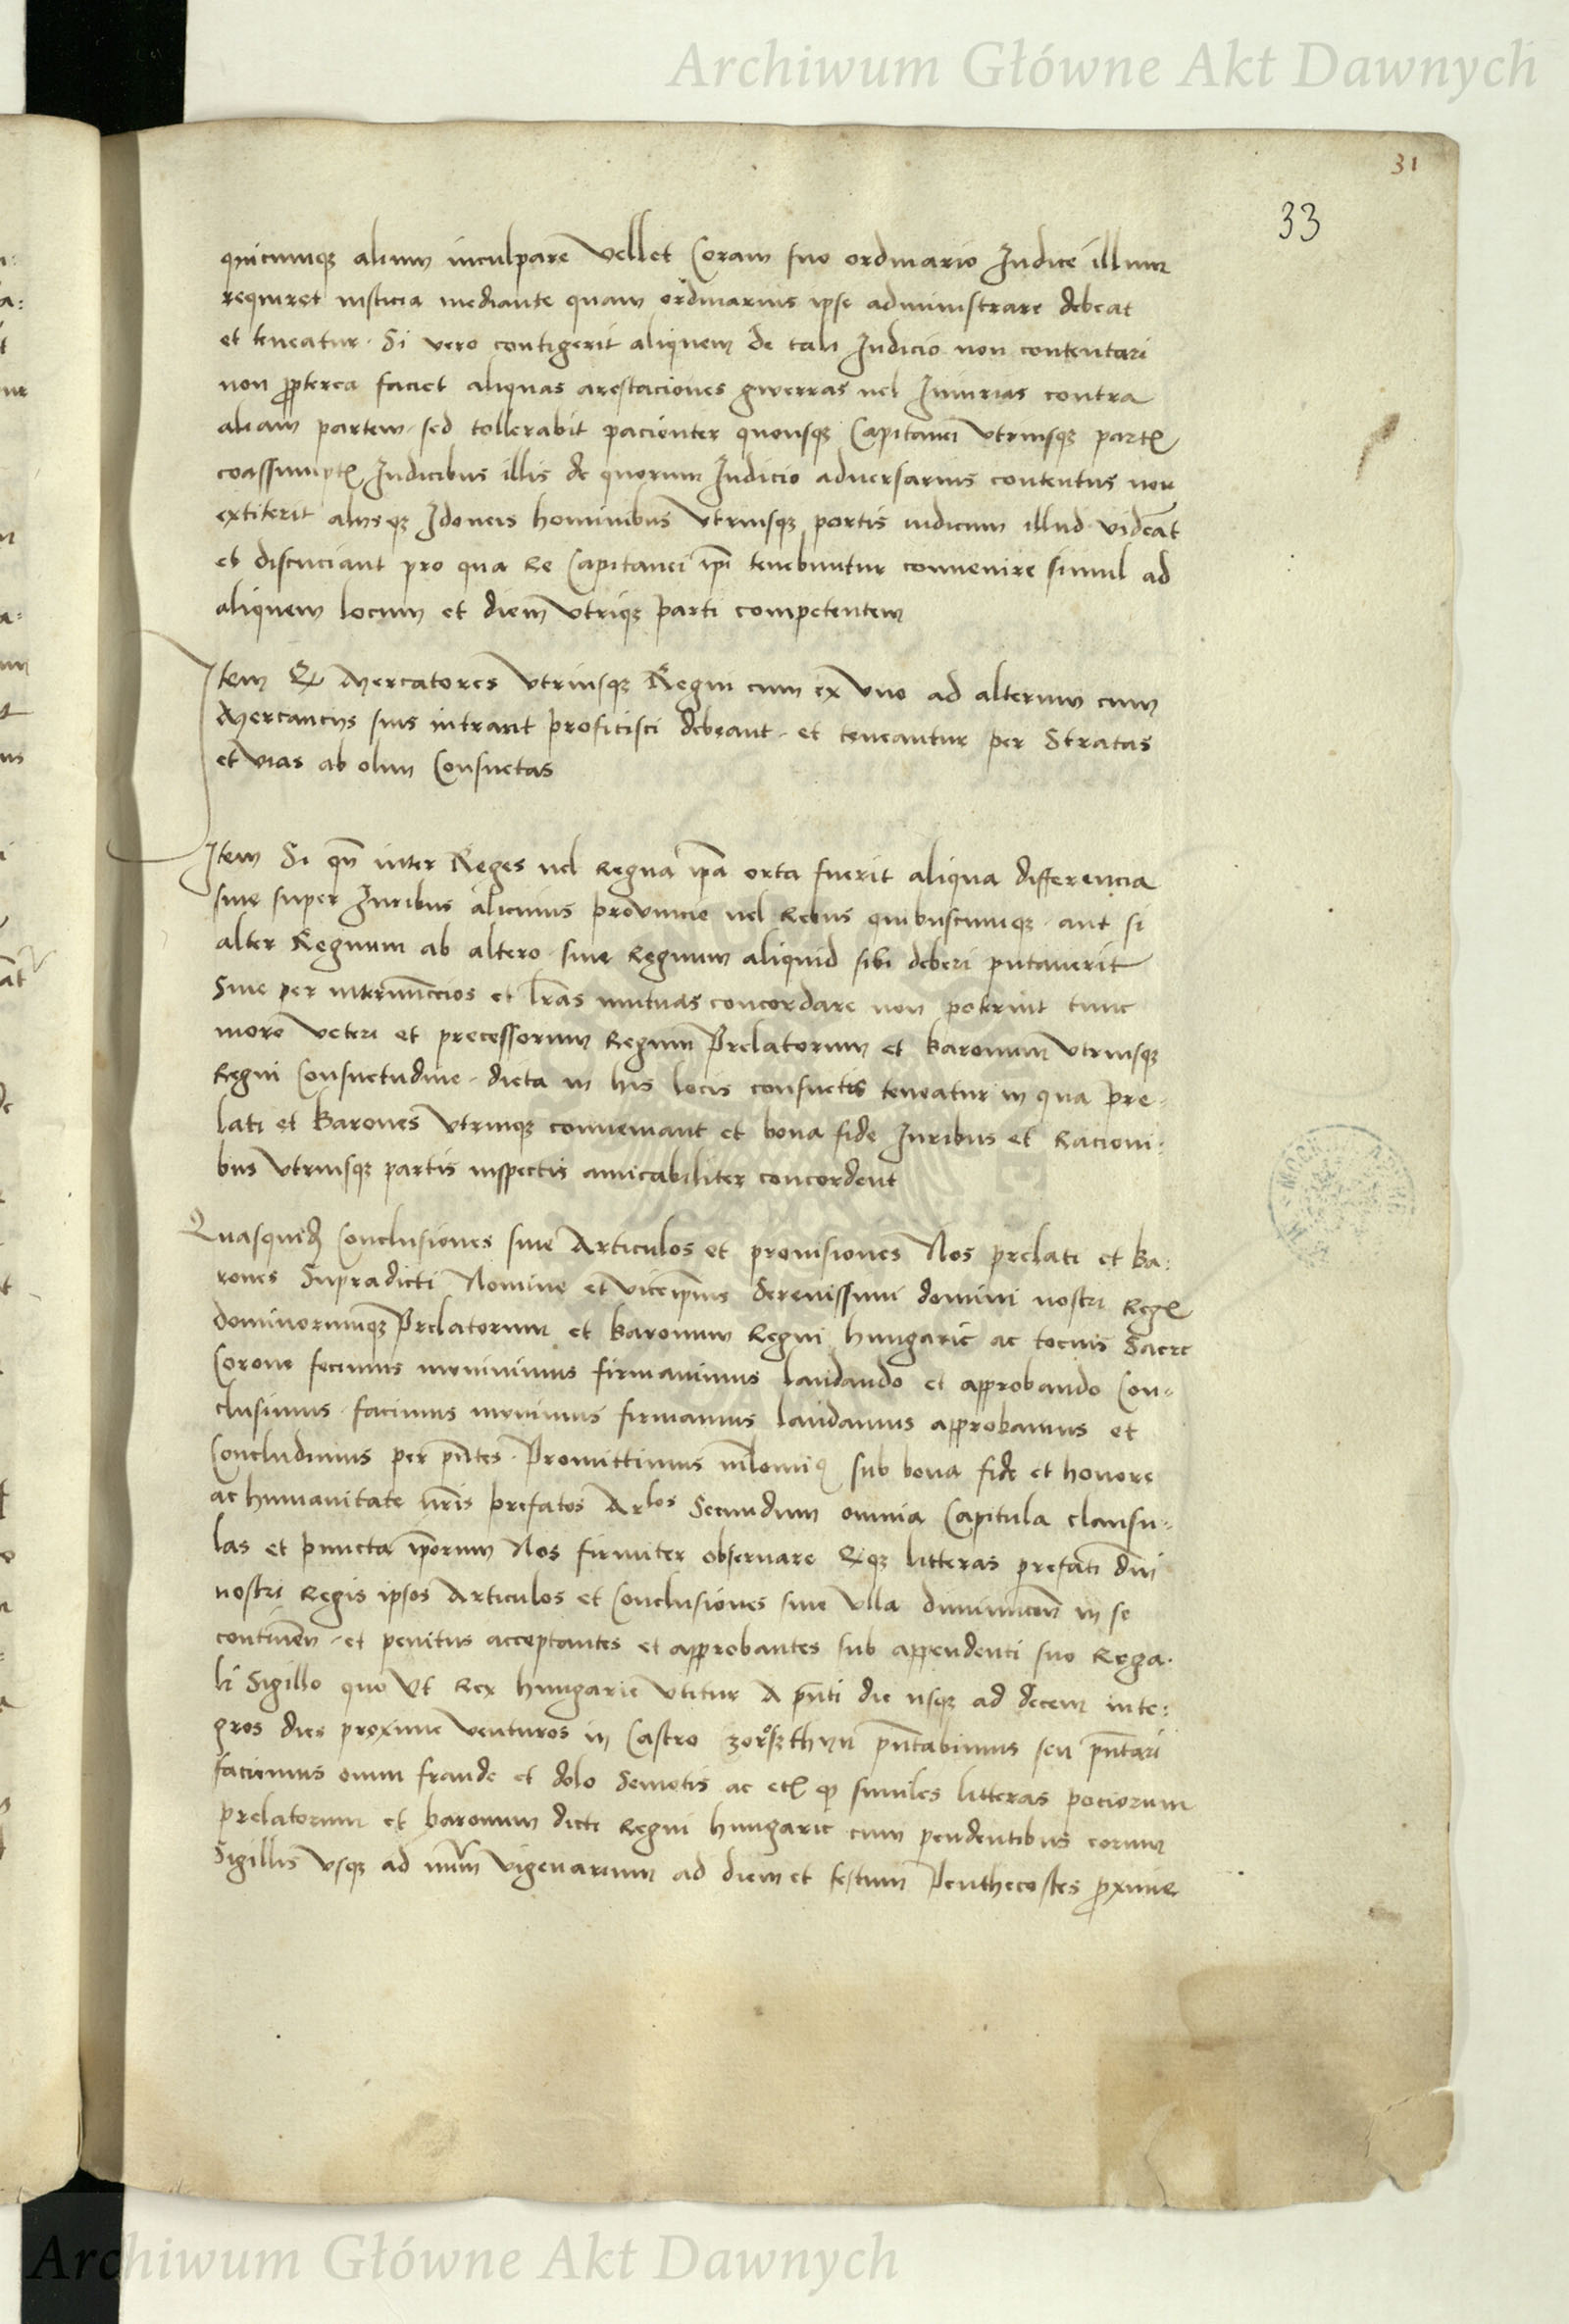 Archiwum Główne Akt Dawnych
31
33
quicumqꝫ alium inculpare vellet Coram suo ordinario Iudice illum
requiret iusticia mediante quam ordinarius ipse administrare debeat
et teneatur. Si vero contigerit aliquem de tali Iudicio non contentari
non ꝓpterea faciet aliquas arestaciones gwerras uel Iniurias contra
aliam partem. sed tollerabit pacienter quousqꝫ Capitanei vtriusqꝫ partꝭ
coassumptꝭ Iudicibus illis de quorum Iudicio aduersarius contentus non
extiterit alysqꝫ Idoneis hominibus vtriusqꝫ partis iudicium illud videāt
et discuciant pro qua re Capitanei ip̄i tenebuntur conuenire simul ad
aliquem locum et diem vtriqꝫ parti competentem
Item Qꝫ Mercatores vtriusqꝫ Regni cum ex vno ad alterum cum
Mercancys suis intrant proficisci debeant. et teneantur per Stratas
et vias ab olim Consuetas
Item Si qn̄ inter Reges uel regna ip̄a orta fuerit aliqua differencia
siue super Iuribus alicuius prouincie uel rebus quibuscumqꝫ. aut si
alter Regnum ab altero. siue regnum aliquid sibi deberi putauerit
Siue per internunccios et l̄ras mutuas concordare non poterint tunc
more veteri et precessorum regum Prelatorum et baronum vtriusqꝫ
regni Consuetudine. dieta in his locis consuetis teneatur in qua pre-
lati et barones vtrinqꝫ conueniant et bona fide Iuribus et racioni-
bus vtriusqꝫ partis inspectis amicabiliter concordent
Quasquidꝫ Conclusiones siue Articulos et prouisiones Nos prelati et ba:
rones Supradicti Nomine et vice ip̄ius Serenissimi domini nostri regꝭ
dominorumqꝫ Prelatorum et baronum regni hungarie ac tocius Sacre
Corone fecimus inniuimus firmauimus laudando et approbando Con-
clusimus. facimus inimus firmamus laudamus approbamus et
Concludimus per pn̄tes. Promittimus nichilomiꝰ sub bona fide et honore
ac humanitate nr̄is prefatos Arlos Secundum omnia Capitula clausu-
las et puncta ip̄orum Nos firmiter obseruare Qꝫqꝫ litteras prefati dn̄i
nostri regis ipsos Articulos et Conclusiones siue vlla diminucōn in se
continen̄. et penitus acceptantes et approbantes sub appendenti suo rega-
li Sigillo quo vt rex hungarie vtitur A pn̄ti die usqꝫ ad decem inte-
gros dies proxime venturos in Castro pn̄tabimus seu pn̄tari
faciemus omni fraude et dolo Semotis ac etꝭ qꝫ similes litteras pociorum
prelatorum et baronum dicti regni hungarie cum pendentibus eorum
Sigillis vsqꝫ ad ad diem et festum Penthecostes ꝓxime
Archiwum Główne Akt Dawnych